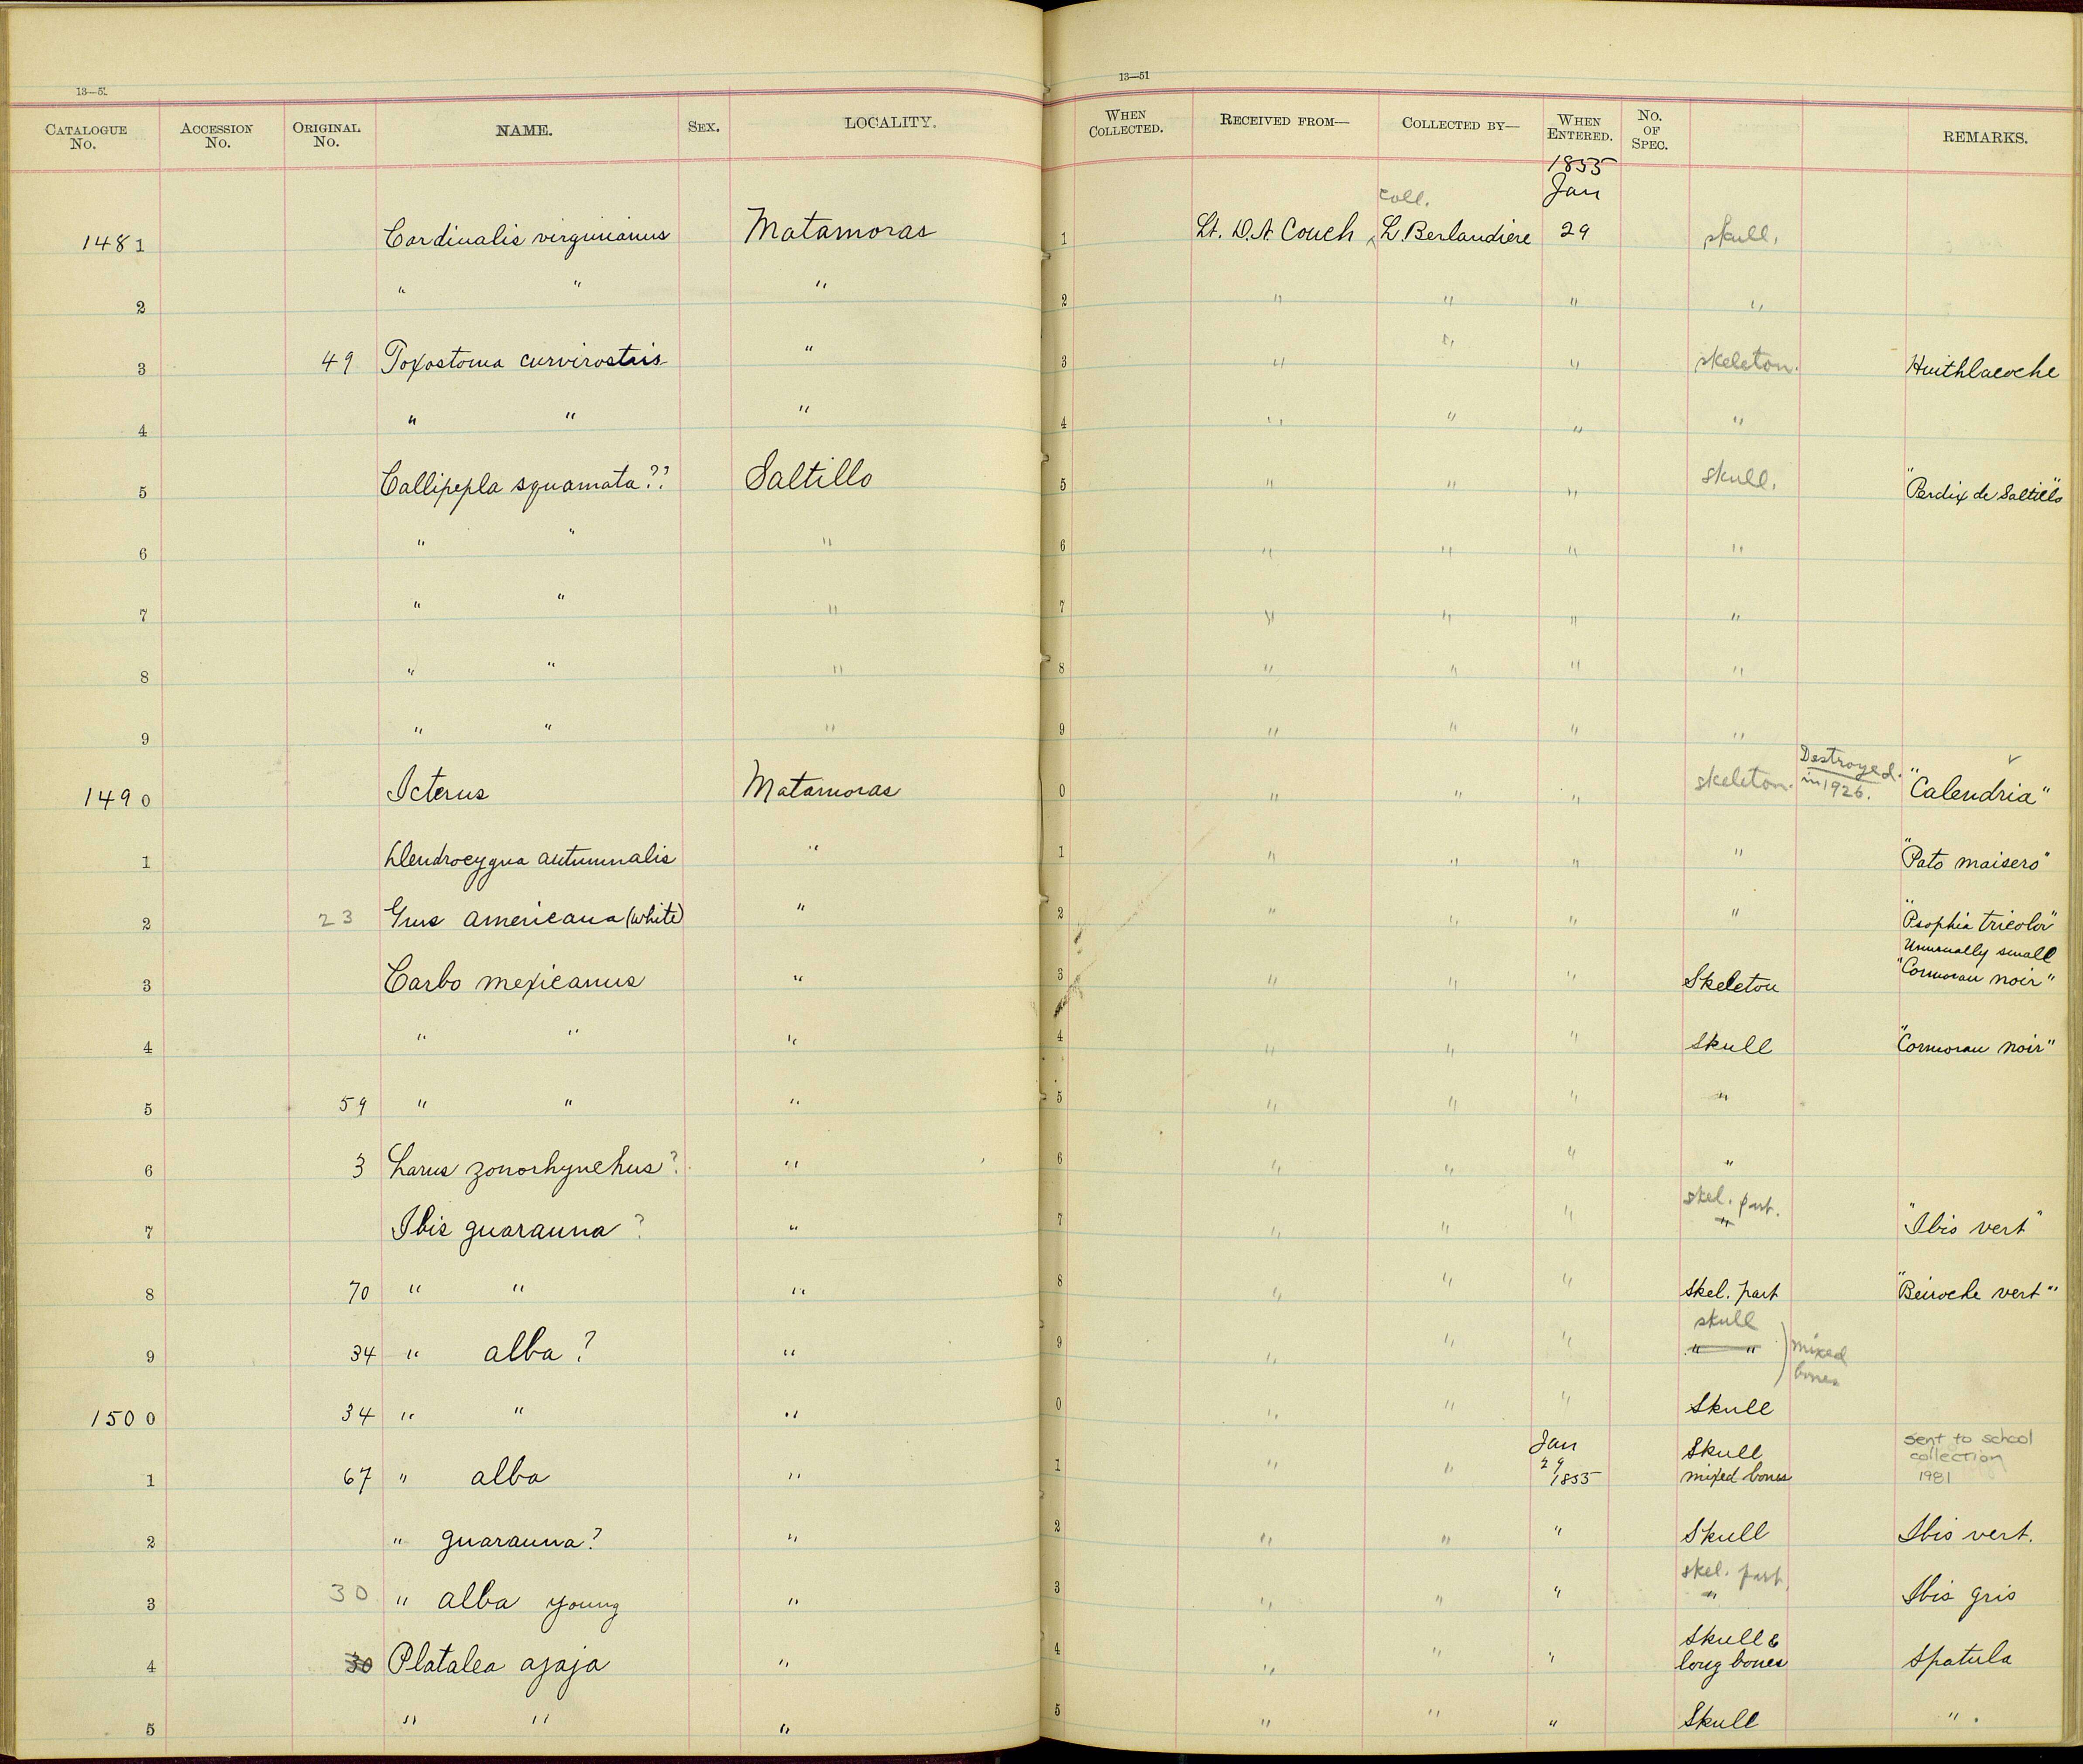 13—51 13—51
CATALOGUE No. ACCESSION No. ORIGINAL No. NAME. SEX. LOCALITY. WHEN COLLECTED. RECEIVED FROM— COLLECTED BY— WHEN ENTERED. No. OF SPEC. REMARKS.
1855
coll. Jan
1481 Cardinalis virginianus Matamoras 1 Lt. D.N. Couch L. Berlandiere 29 skull.
2 " " " 2 " " " "
3 49 Toxostoma curvirostris " 3 " " " skeleton. Huithlacoche
4 " " " 4 " " " "
5 Callipepla squamata?? Saltillo 5 " " " skull. "Perdix de Saltillo"
6 " " " 6 " " " "
7 " " " 7 " " " "
8 " " " 8 " " " "
9 " " " 9 " " " "
1490 Icterus Matamoras 0 " " " skeleton. Destroyed in 1926. "Calendria"
1 Dendrocygna autumnalis " 1 " " " " "Pato maisero"
2 23 Grus americana (white) " 2 " " " " "Psophia tricolor"
Unusually small
3 Carbo mexicanus " 3 " " " Skeleton "Cormoran noir"
4 " " " 4 " " " Skull "Cormoran noir"
5 59 " " " 5 " " " "
6 3 Larus zonorhynchus? " 6 " " " "
skel. part.
7 Ibis guarauna ? " 7 " " " " "Ibis vert"
8 70 " " " 8 " " " Skel. part "Beiroche vert"
skull
9 34 " alba ? " 9 " " " " " mixed bones
1500 34 " " " 0 " " " Skull
1 67 " alba " 1 " " Jan 29 1855 Skull mixed bones sent to school collection 1981
2 " guarauna? " 2 " " " Skull Ibis vert.
skel. part.
3 30 " alba young " 3 " " " " Ibis gris
4 30 Platalea ajaja " 4 " " " Skull & long bones Spatula
5 " " " 5 " " " Skull " .